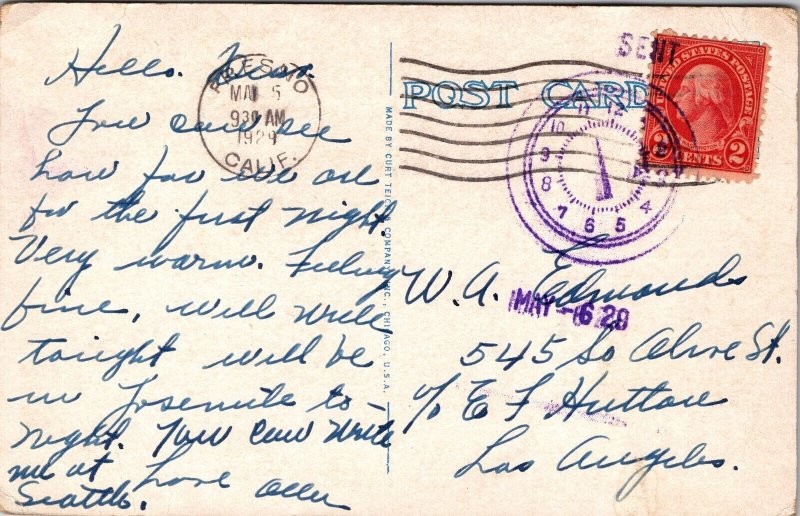 Hello. Dear.
You can see
how far we are
for the first night.
Very warm. Feeling
fine, will write
tonight will be
in Yosemite to-
night. You can write
me at Love
Seattle.
FRESNO
MAY 5
930 AM
1929
CALIF.
MADE BY CURT TEICH & COMPANY, INC., CHICAGO, U.S.A.
POST CARD
SENT
11 12
10
9
8
7 6 5 4
UNITED STATES POSTAGE
2 CENTS 2
W. A. Edmonds
MAY -6 29
545 So Olive St.
c/o E F Hutton
Los Angeles.